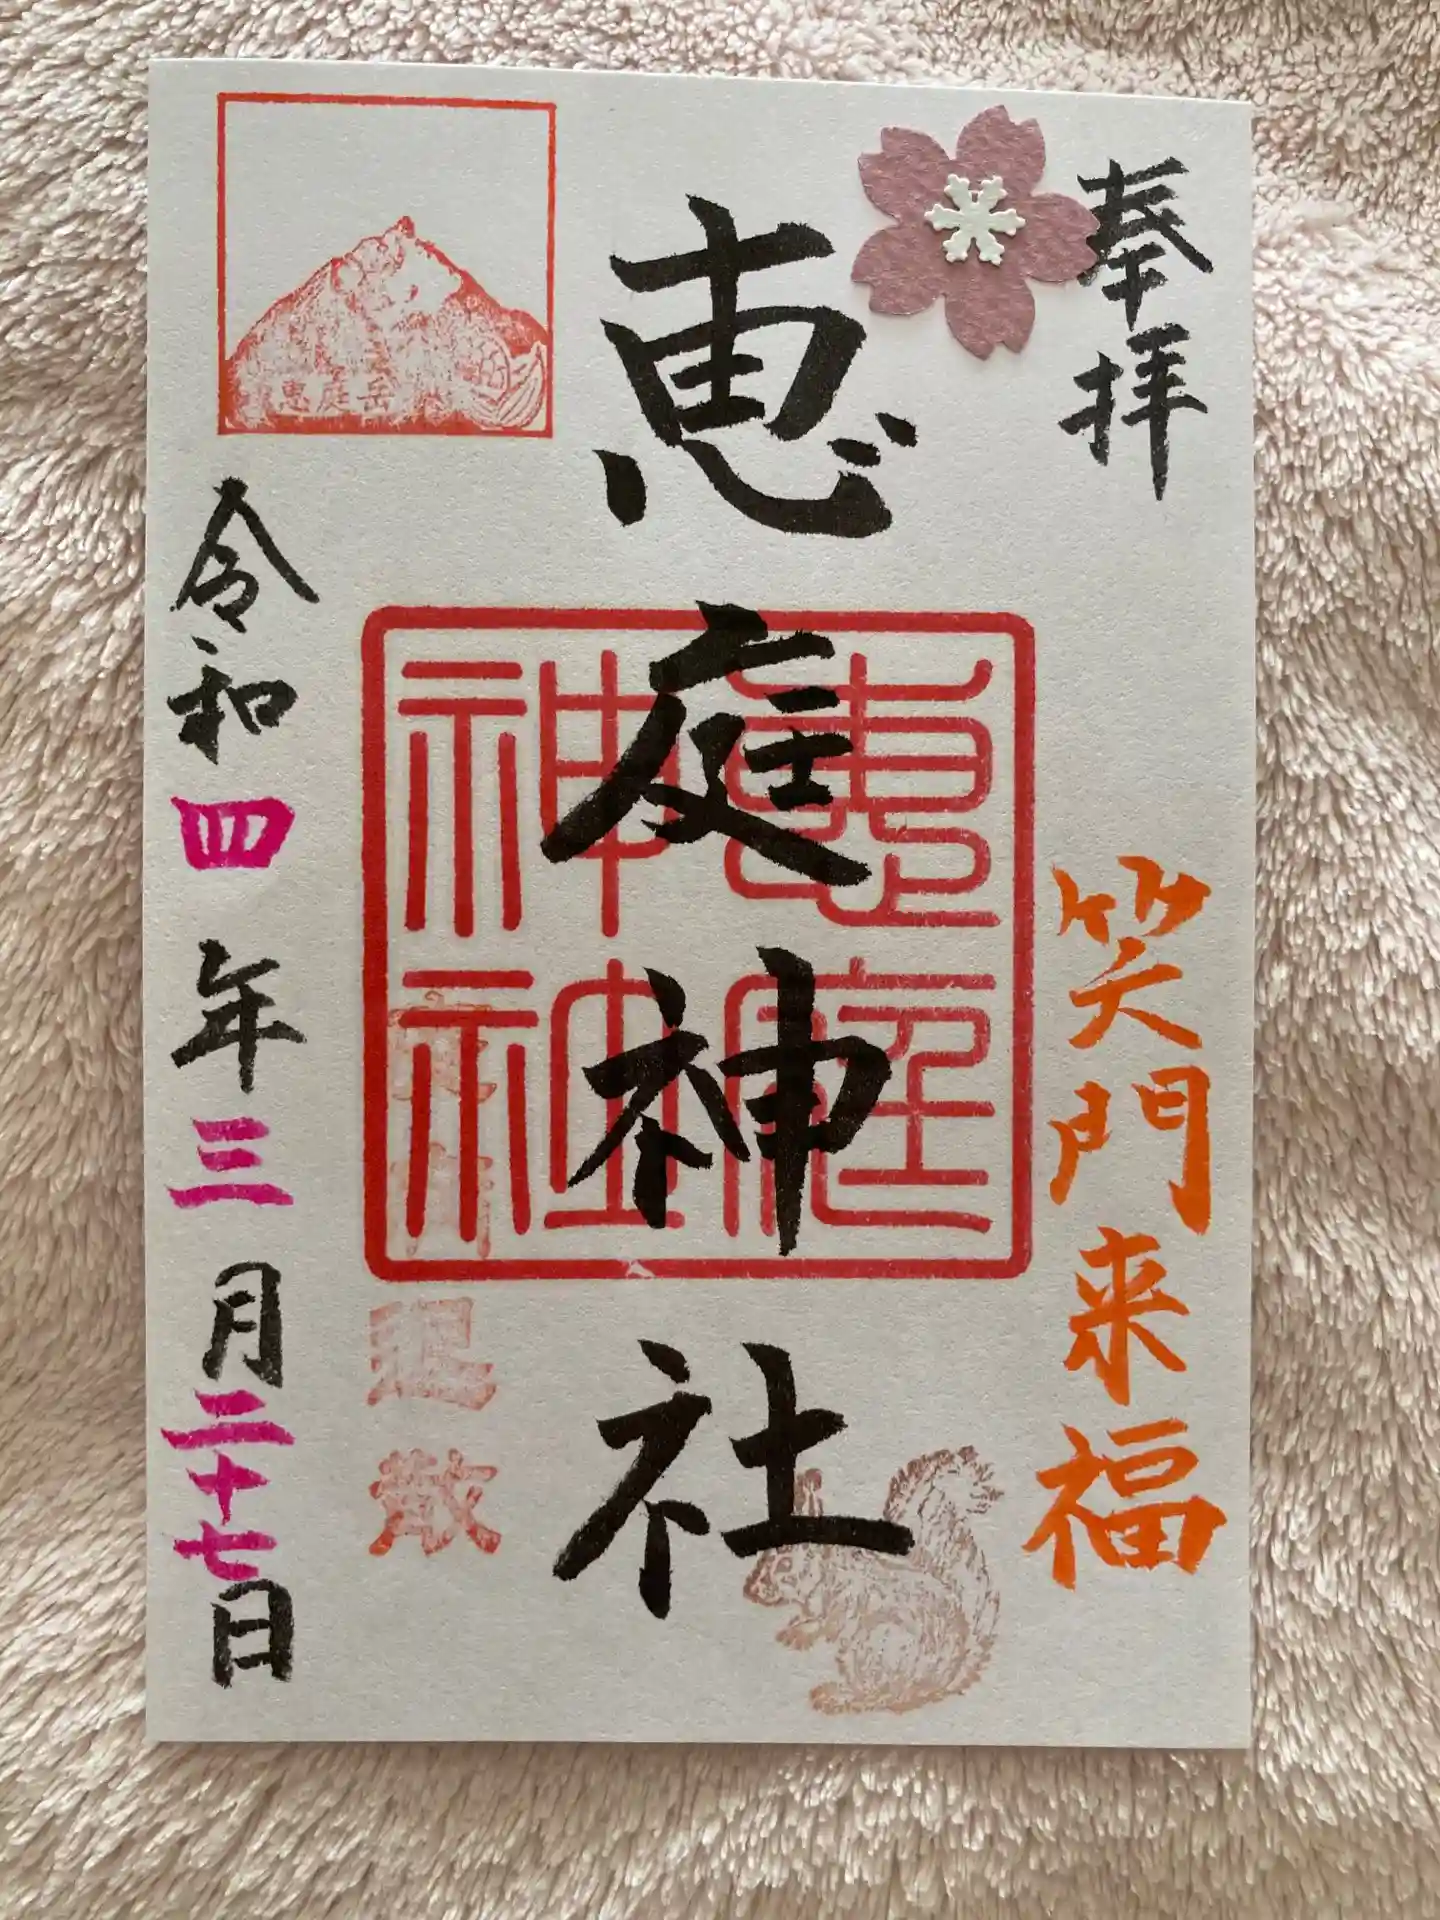 奉拝
笑門来福
恵庭神社
恵庭神社
疫病退散
恵庭岳
令和四年三月二十七日